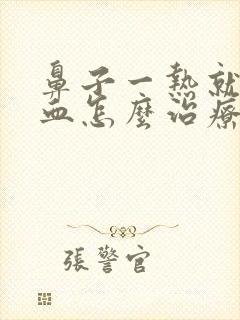 鼻子一熱就
血怎麼治療
張警官